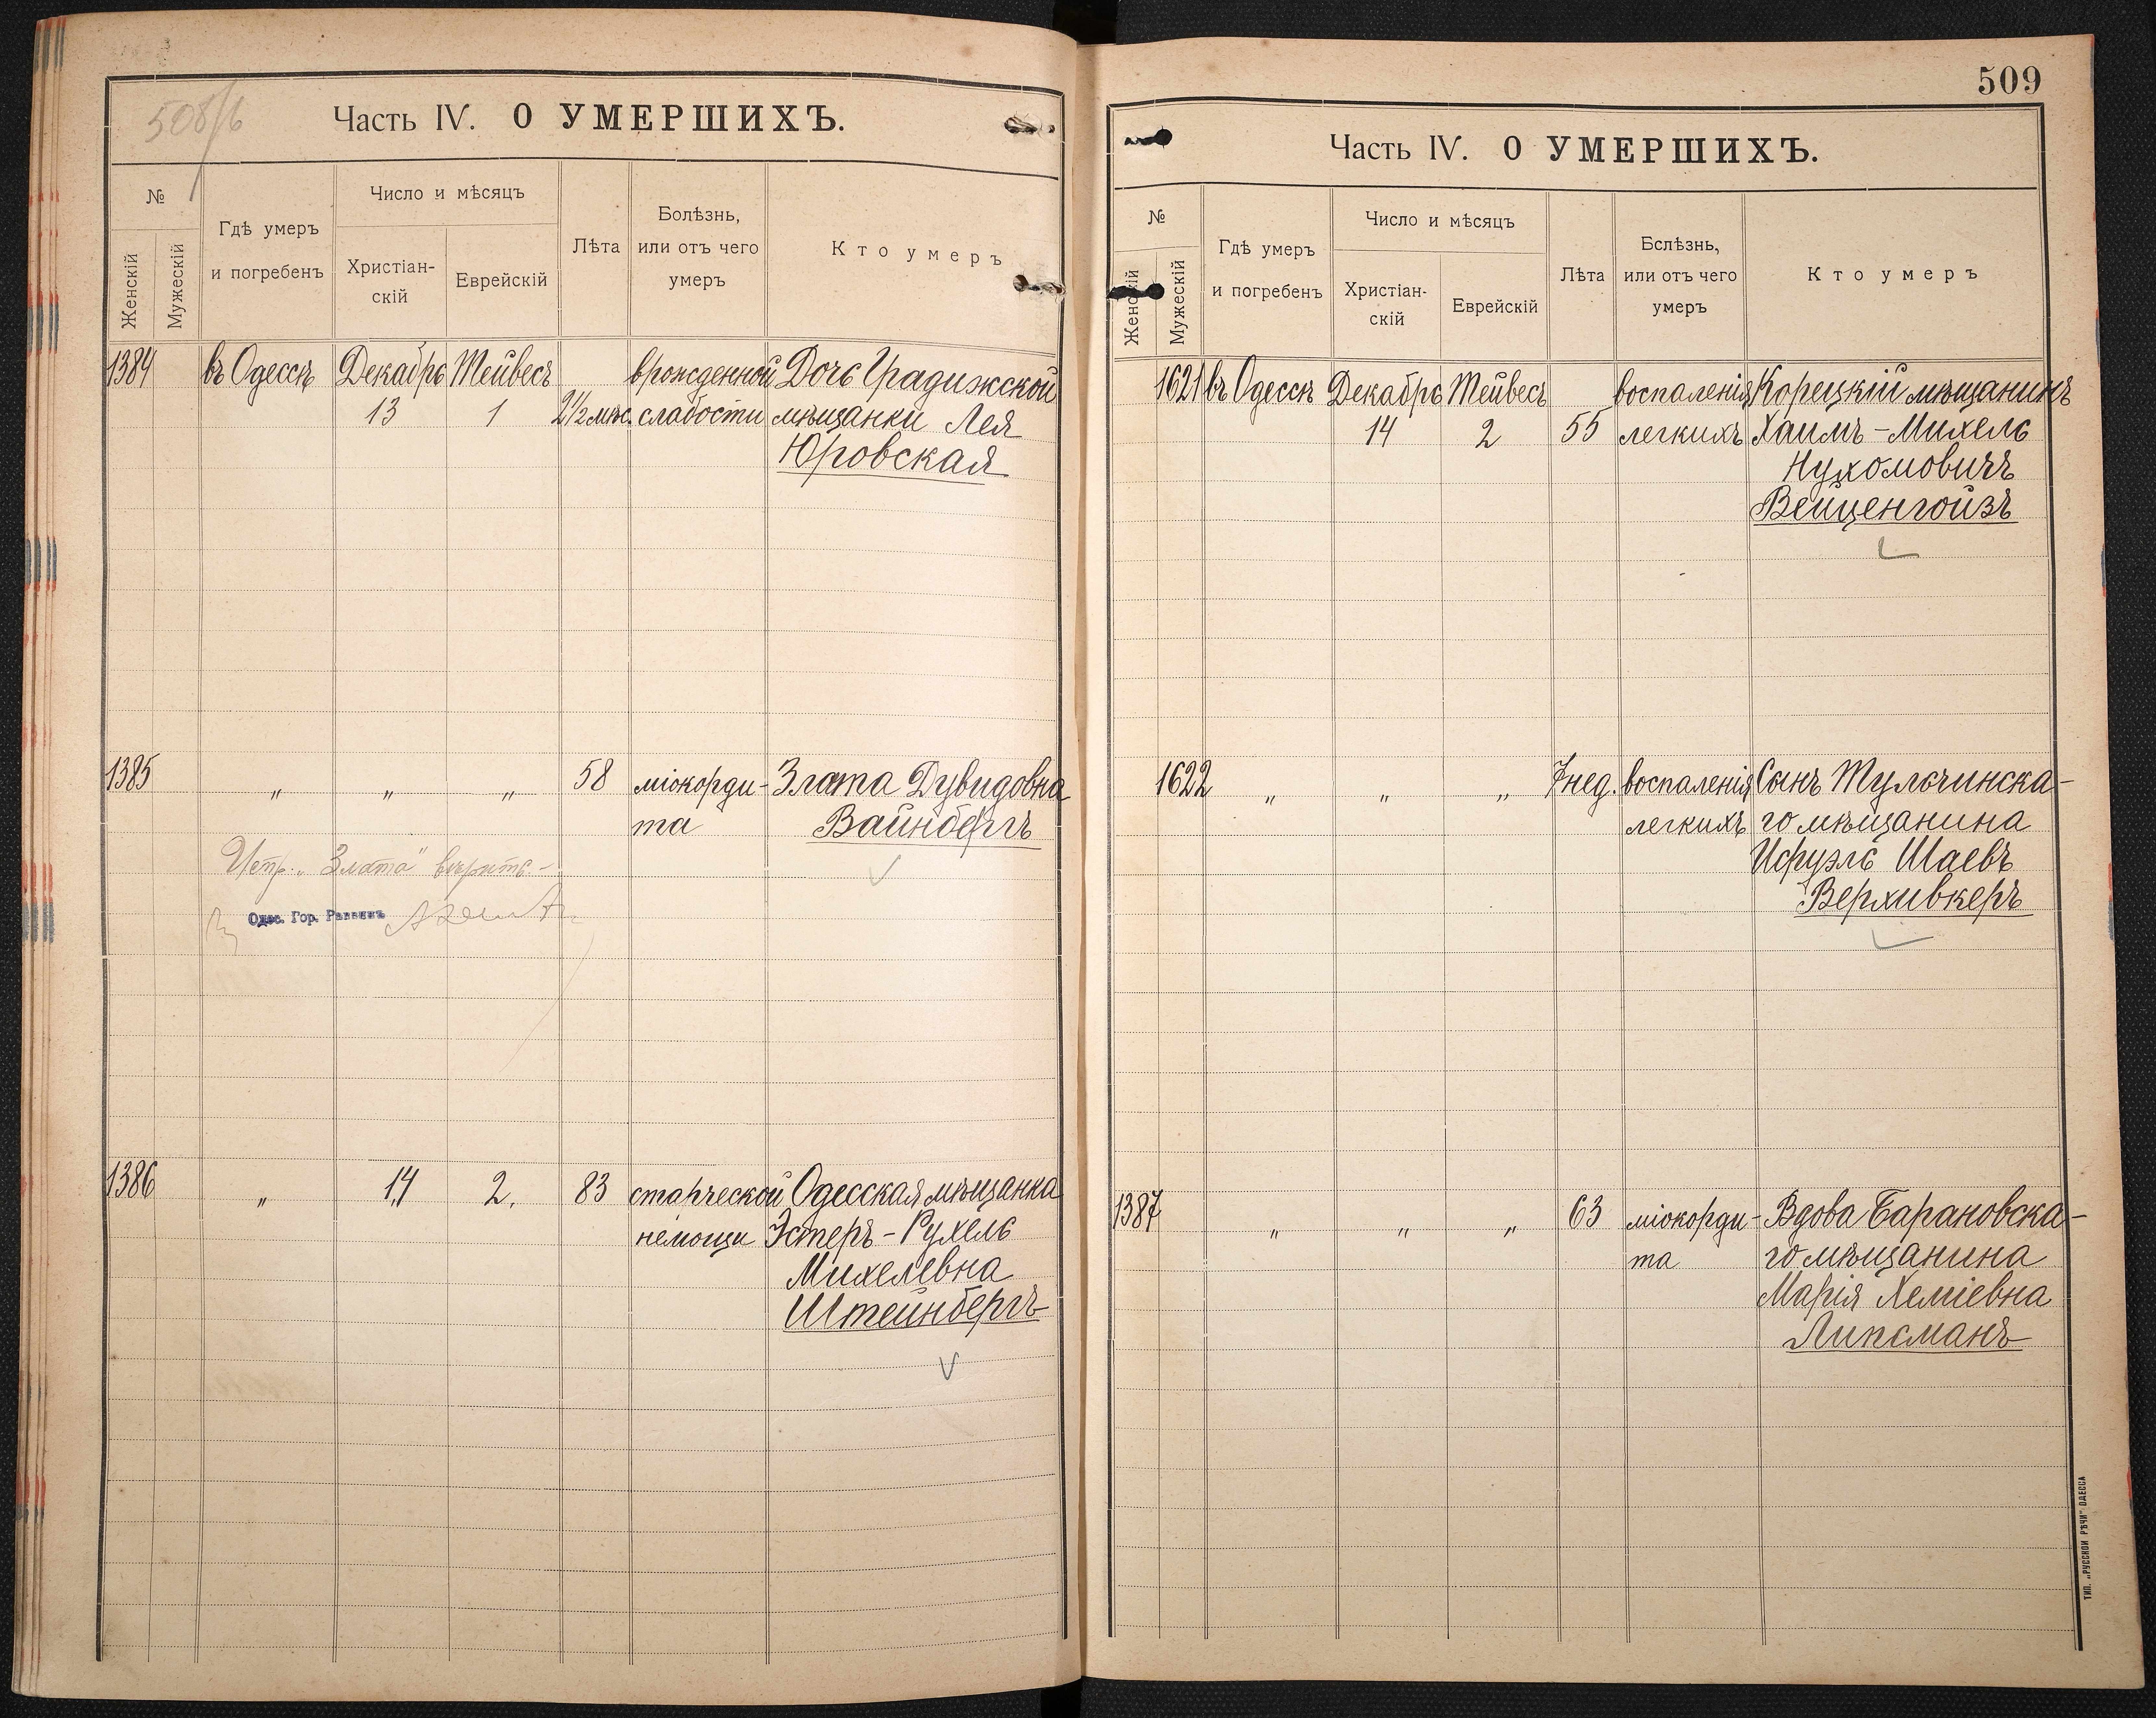 508/б
Часть IV. О УМЕРШИХЪ.
№
Женскій
Мужескій
Гдѣ умеръ
и погребенъ
Число и мѣсяцъ
Христіан-
скій
Еврейскій
Лѣта
Болѣзнь,
или отъ чего
умеръ
Кто умеръ
1384 въ Одессѣ Декабрь Тейвесъ врожденной Дочь Градижской
13 1 2 1/2 мѣс. слабости мѣщанки Лея
Юровская
1385 „ „ „ 58 міокорди- Злата Дувидовна
та Вайнбергъ
„Злата" вѣрить.-
Одес. Гор. Раввинъ
1386 „ 14 2. 83 старческой Одесская мѣщанка
немощи Эстеръ-Рухель
Михелевна
Штейнбергъ
509
Часть IV. О УМЕРШИХЪ.
№
Женскій
Мужескій
Гдѣ умеръ
и погребенъ
Число и мѣсяцъ
Христіан-
скій
Еврейскій
Лѣта
Бслѣзнь,
или отъ чего
умеръ
Кто умеръ
1621 въ Одессѣ Декабрь Тейвесъ воспаленія Корецкій мѣщанинъ
14 2 55 легкихъ Хаимъ-Михель
Нухомовичъ
Вейценгойзъ
1622 „ „ „ 7 нед. воспаленія Сынъ Тульчинска-
легкихъ го мѣщанина
Исруэль Шаевъ
Верхивкеръ
1387 „ „ „ 63 міокорди- Вдова Барановска-
та го мѣщанина
Марія Хеміевна
Липсманъ
ТИП. „РУССКОЙ РѢЧИ" ОДЕССА